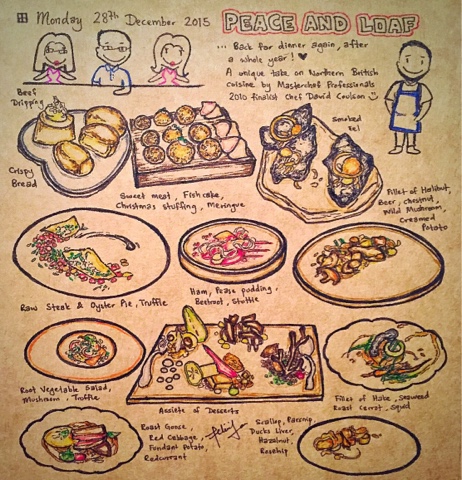 Monday 28th December 2015
PEACE AND LOAF
... Back for dinner again, after
a whole year!
A unique take on Northern British
cuisine by Masterchef Professionals
2010 finalist Chef David Coulson
Beef
Dripping
Crispy
Bread
Sweet meat, Fishcake,
Christmas stuffing, Meringue
Smoked
Eel
Fillet of Halibut,
Beer, chestnut,
Wild Mushroom,
Creamed
Potato
Raw Steak & Oyster Pie, Truffle
Ham, Pease pudding,
Beetroot, Stottie
Root Vegetable Salad,
Mushroom, Truffle
Assiett of Desserts
Fillet of Hake, Seaweed
Roast Carrot, Squid
Roast Goose,
Red Cabbage,
Fondant Potato,
Redcurrant
Scallop, Parsnip,
Ducks Liver,
Hazelnut,
Rosehip